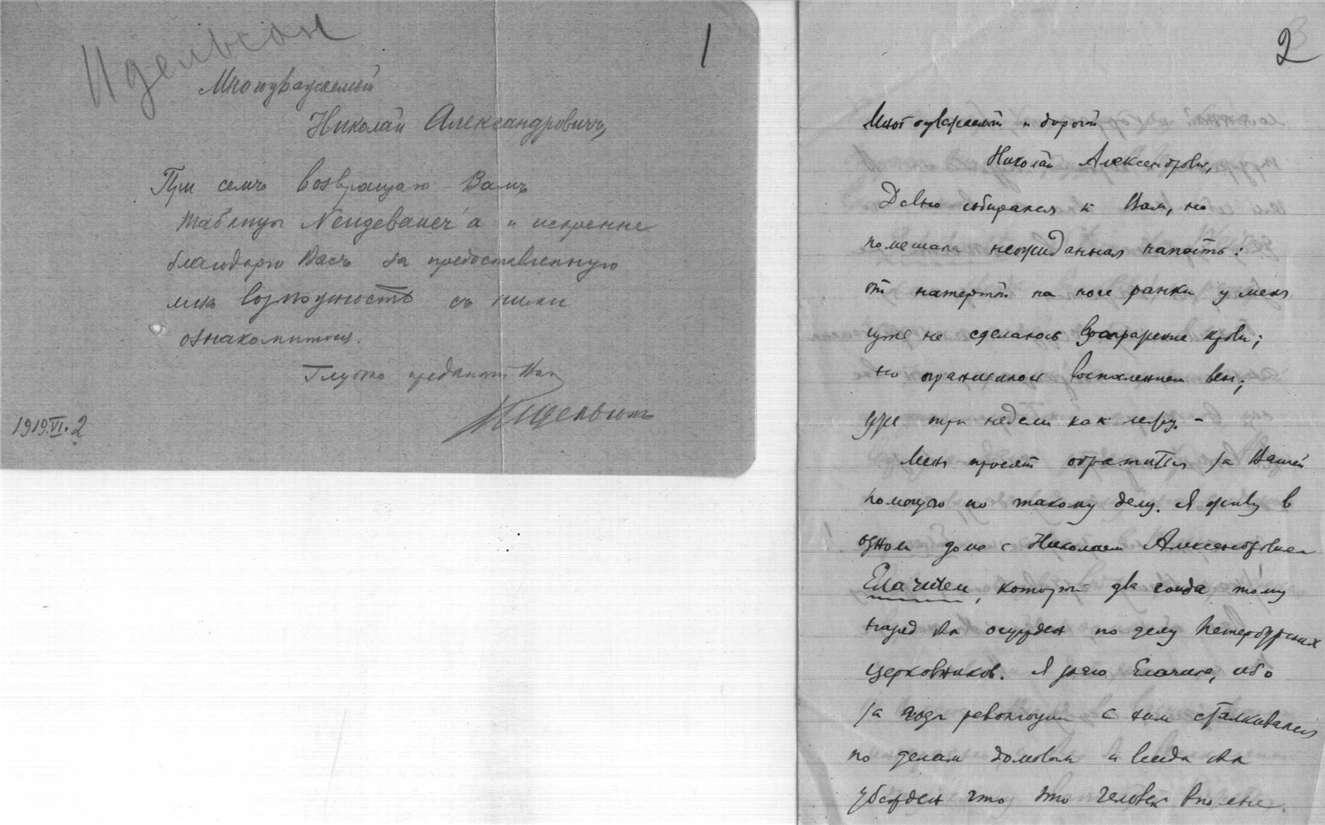 Идельсон
1
Многоуважаемый
Николай Александровичъ,
При семъ возвращаю Вамъ
таблицы Neugebauer'a и искренне
благодарю Васъ за предоставленную
мнѣ возможность съ ними
ознакомиться.
Глубоко преданный Вам
НИдельсон
1919.VI.2
2
Многоуважаемый и дорогой
Николай Александрович,
Давно собирался к Вам, но
помешала неожиданная напасть:
от натертой на ноге ранки у меня
чуть не сделалось заражение крови;
но ограничилось воспалением вен;
уже три недели как лежу. -
Меня просят обратиться за Вашей
помощью по такому делу. Я живу в
одном доме с Николаем Александровичем
Елачичем, который два года тому
назад был осужден по делу Петербургских
церковников. Я знаю Елачича, ибо
за годы революции с ним сталкивался
по делам домовым и всегда был
убежден что это человек вполне